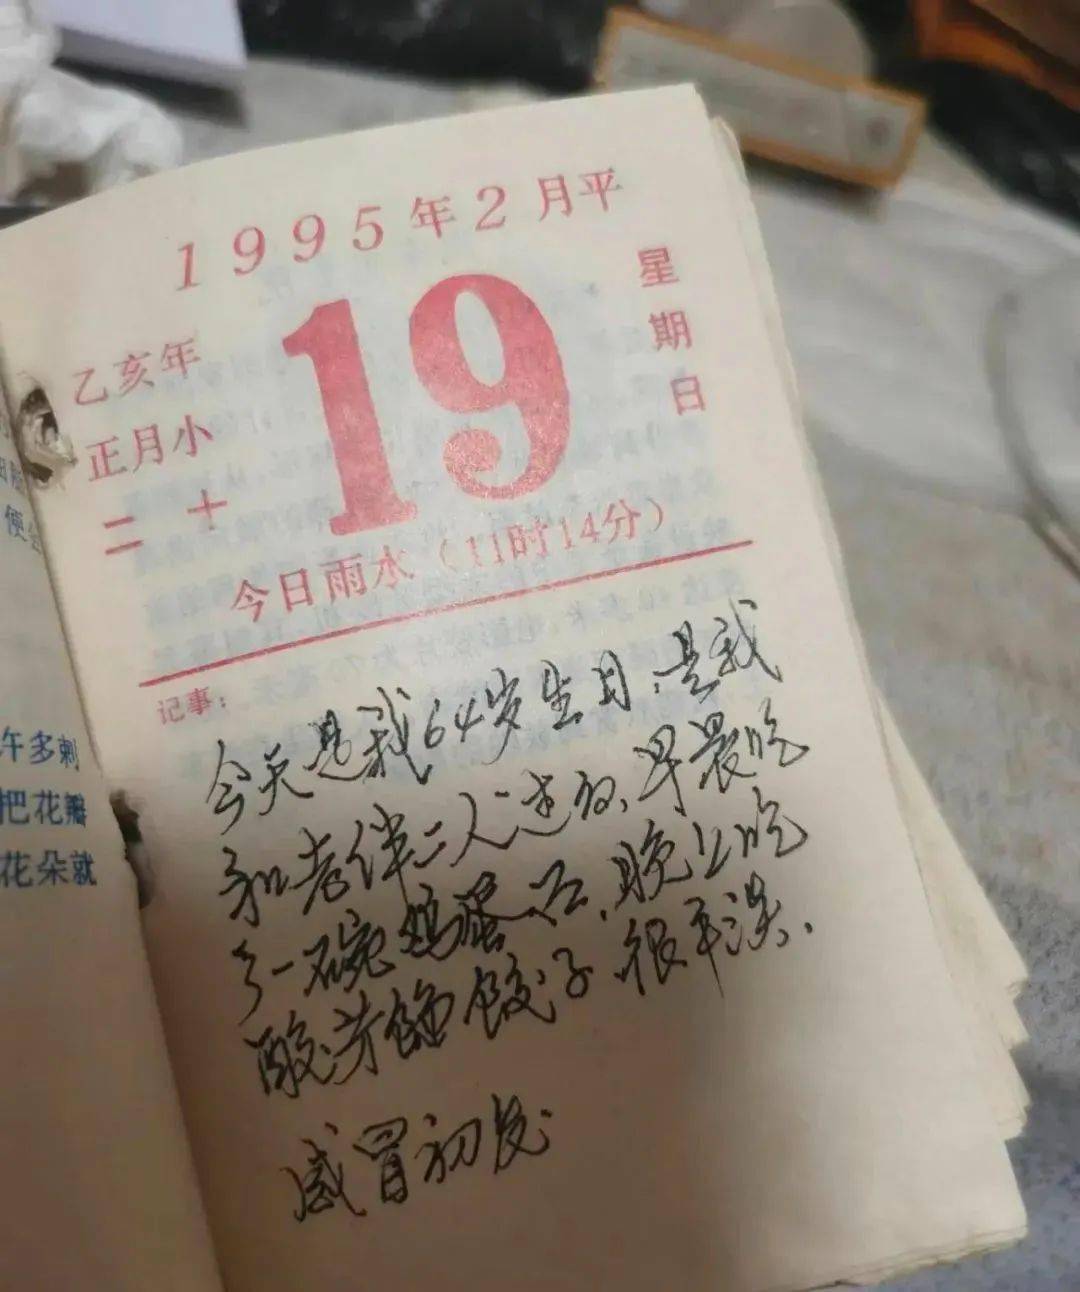 1995年2月平
19
星期日
乙亥年
正月小
二十
今日雨水（11时14分）
记事：
今天是我64岁生日，是我
和老伴二人过的，早晨吃
了一碗鸡蛋
晚上吃
酸芳馅饺子，很平淡.
感冒初发
便
午多刺
把花瓣
花朵就